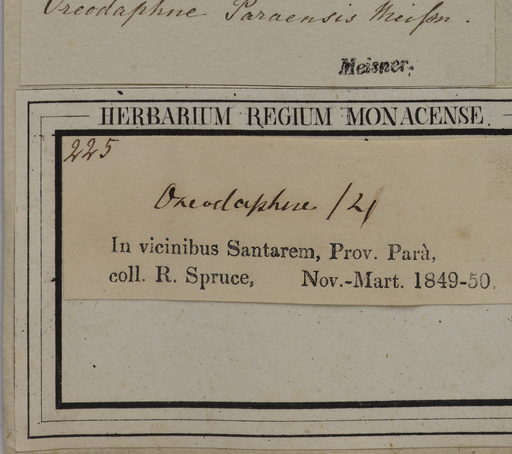 Oreodaphne Paraensis Meißn.
Meisner.
HERBARIUM REGIUM MONACENSE
225
Oreodaphne /2/
In vicinibus Santarem, Prov. Parà,
coll. R. Spruce, Nov.-Mart. 1849-50.